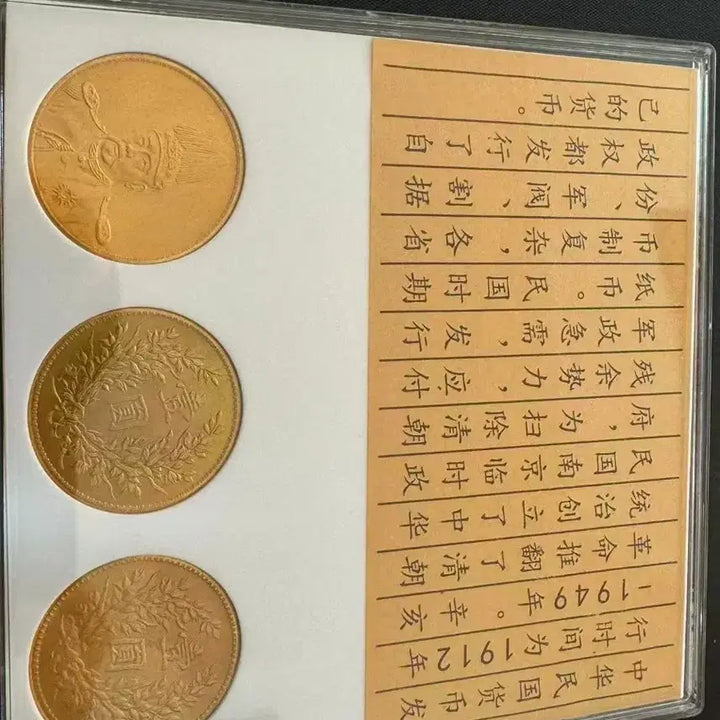 中华民国货币发
行时间为1912年
-1949年。辛亥
革命推翻了清朝
统治创立了中华
民国南京临时政
府，为扫除清朝
残余势力，应付
军政急需，发行
纸币。民国时期
币制复杂，各省
份、军阀割据
政权都发行了自
己的货币。
壹圓
壹圓